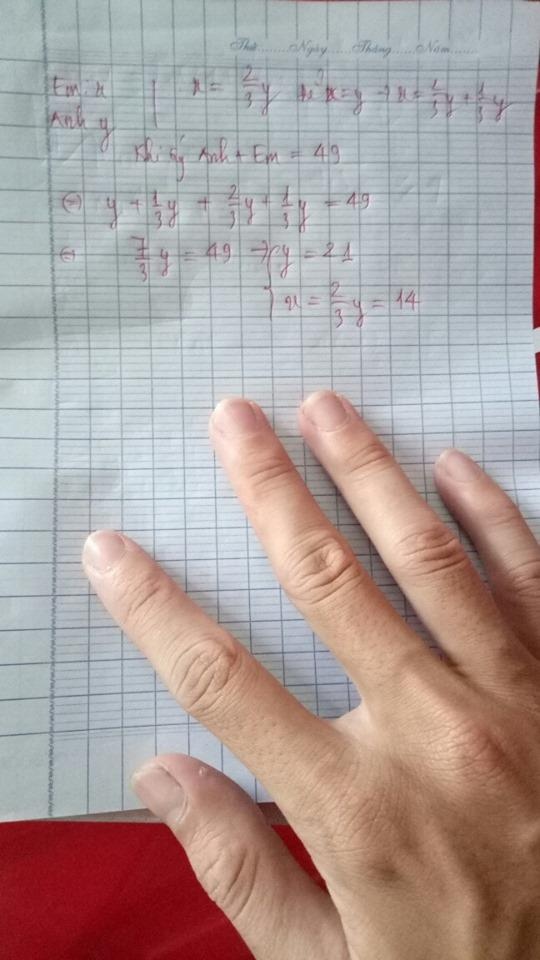 Thứ........Ngày......Tháng......Năm.......
Em: x | x = 2/3 y x = y → x = 2/3 y + 1/3 y
Anh y
Khi ấy Anh + Em = 49
⇔ y + 1/3 y + 2/3 y + 1/3 y = 49
⇔ 7/3 y = 49 → { y = 21
x = 2/3 y = 14